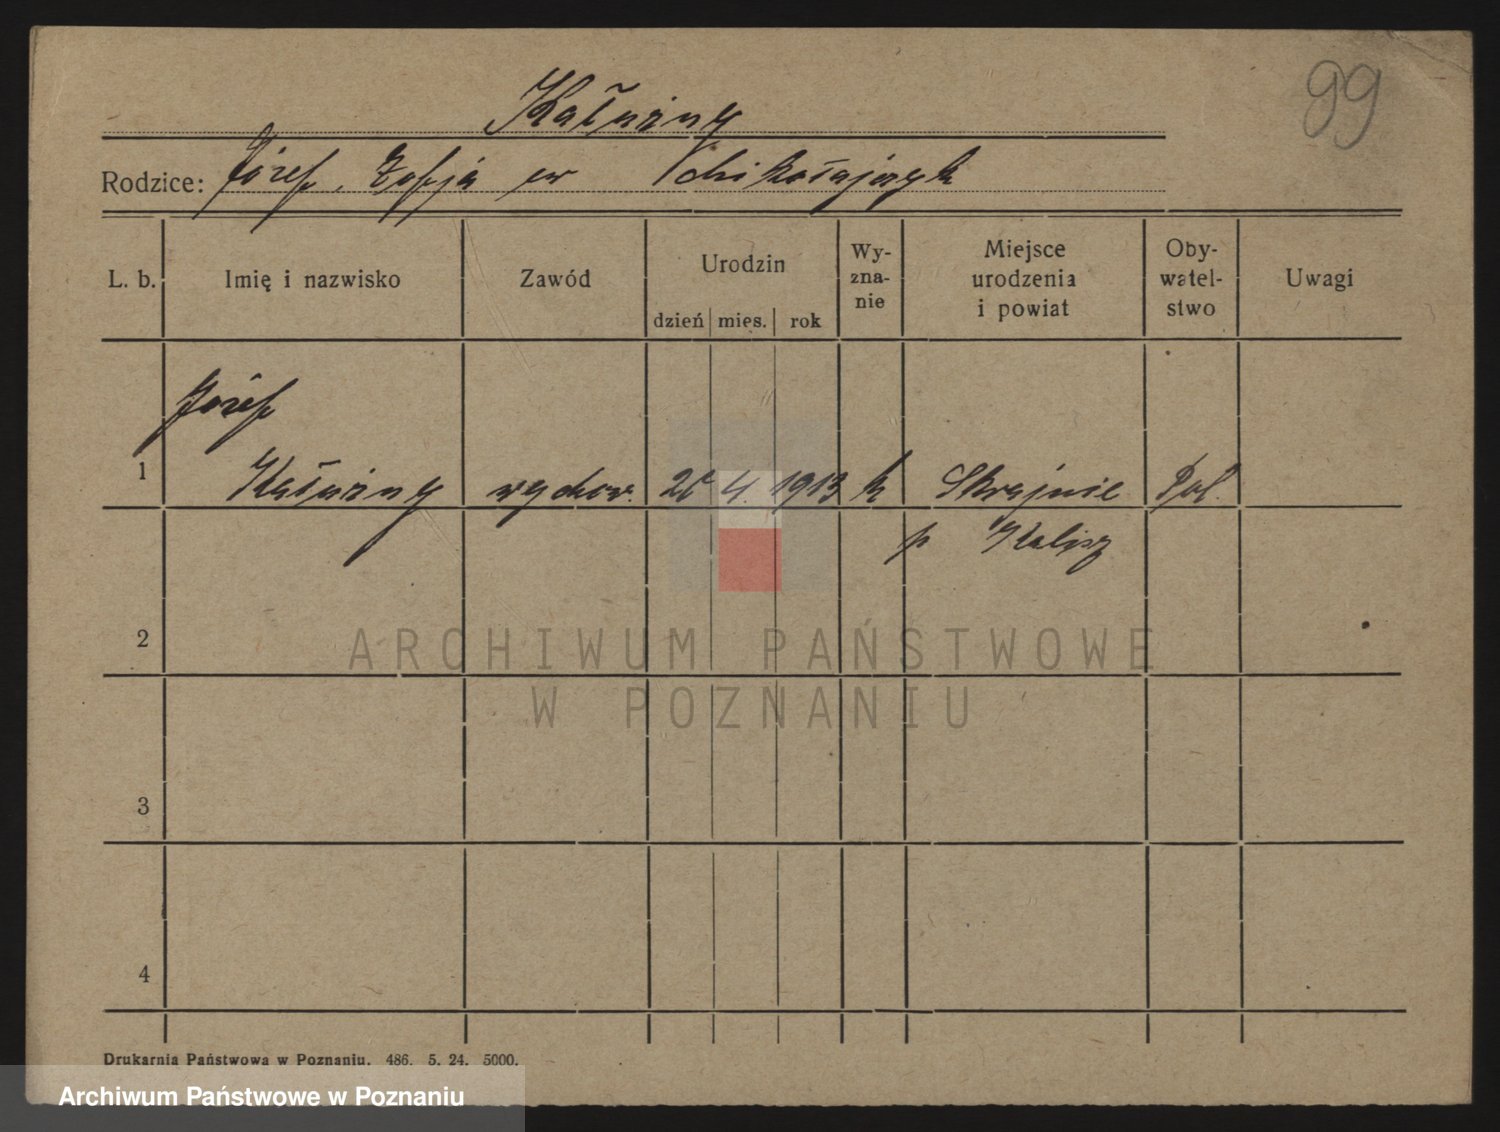 99
Kałużny
Rodzice: Józef, Zofja w Mikołajczyk
L. b. Imię i nazwisko Zawód Urodzin dzień mies. rok Wy-zna-nie Miejsce urodzenia i powiat Oby-watel-stwo Uwagi
Józef
1 Kałużny wychow. 4. 1913 k Skrajnie Pol.
p Kalisz
2
ARCHIWUM PAŃSTWOWE
W POZNANIU
3
4
Drukarnia Państwowa w Poznaniu. 486. 5. 24. 5000.
Archiwum Państwowe w Poznaniu